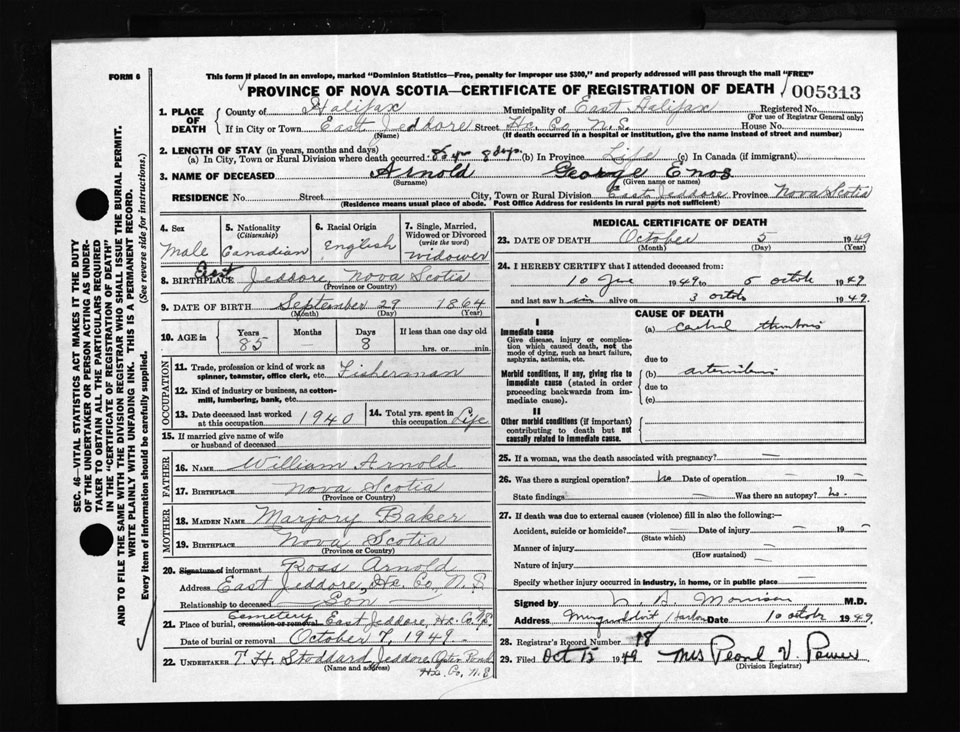 FORM 6
This form if placed in an envelope, marked "Dominion Statistics—Free, penalty for improper use $300," and properly addressed will pass through the mail "FREE"
PROVINCE OF NOVA SCOTIA—CERTIFICATE OF REGISTRATION OF DEATH
005313
1. PLACE OF DEATH
County of Halifax Municipality of East Halifax Registered No.
(For use of Registrar General only)
If in City or Town East Jeddore Street Hx. Co. N.S. House No.
(Name) (If death occurred in a hospital or institution, give the name instead of street and number)
2. LENGTH OF STAY (in years, months and days)
(a) In City, Town or Rural Division where death occurred 85 yr 8 days. (b) In Province Life (c) In Canada (if immigrant)
3. NAME OF DECEASED Arnold George Enos
(Surname) (Given name or names)
RESIDENCE No. Street City, Town or Rural Division East Jeddore Province Nova Scotia
(Residence means usual place of abode. Post Office Address for residents in rural parts not sufficient)
4. Sex
Male
5. Nationality
(Citizenship)
Canadian
6. Racial Origin
English
7. Single, Married, Widowed or Divorced
(write the word)
Widower
8. BIRTHPLACE East Jeddore Nova Scotia
(Province or Country)
9. DATE OF BIRTH September 29 1864
(Month) (Day) (Year)
10. AGE in
Years Months Days If less than one day old
85 — 8 hrs. or min.
OCCUPATION
11. Trade, profession or kind of work as spinner, teamster, office clerk, etc. Fisherman
12. Kind of industry or business, as cotton-mill, lumbering, bank, etc.
13. Date deceased last worked at this occupation 1940
14. Total yrs. spent in this occupation Life
15. If married give name of wife or husband of deceased
FATHER
16. NAME William Arnold
17. BIRTHPLACE Nova Scotia
(Province or Country)
MOTHER
18. MAIDEN NAME Marjory Baker
19. BIRTHPLACE Nova Scotia
(Province or Country)
20. Signature of informant Ross Arnold
Address East Jeddore, Hx. Co. N.S
Relationship to deceased Son
Cemetery
21. Place of burial, cremation or removal East Jeddore, Hx. Co. N.S.
Date of burial or removal October 7, 1949
22. UNDERTAKER T. H. Stoddard, Jeddore Oyster Pond
(Name and address) Hx. Co. N.S
MEDICAL CERTIFICATE OF DEATH
23. DATE OF DEATH October 5 1949
(Month) (Day) (Year)
24. I HEREBY CERTIFY that I attended deceased from:
10 1949 to 5 1949
and last saw him alive on 3 1949.
CAUSE OF DEATH
I
Immediate cause
Give disease, injury or complication which caused death, not the mode of dying, such as heart failure, asphyxia, asthenia, etc.
(a)
due to
Morbid conditions, if any, giving rise to immediate cause (stated in order proceeding backwards from immediate cause).
(b)
due to
(c)
II
Other morbid conditions (if important) contributing to death but not causally related to immediate cause.
25. If a woman, was the death associated with pregnancy? —
26. Was there a surgical operation? No Date of operation — 19 —
State findings — Was there an autopsy? No.
27. If death was due to external causes (violence) fill in also the following:—
Accident, suicide or homicide? — Date of injury — 19 —
(State which)
Manner of injury —
(How sustained)
Nature of injury —
Specify whether injury occurred in industry, in home, or in public place —
Signed by Morrison M.D.
Address, Date 10 1949.
28. Registrar's Record Number 18
29. Filed Oct 15 1949 Mrs Pearl V. Power
(Division Registrar)
SEC. 46—VITAL STATISTICS ACT MAKES IT THE DUTY
OF THE UNDERTAKER OR PERSON ACTING AS UNDER-
TAKER TO OBTAIN ALL THE PARTICULARS REQUIRED
IN THE "CERTIFICATE OF REGISTRATION OF DEATH"
AND TO FILE THE SAME WITH THE DIVISION REGISTRAR WHO SHALL ISSUE THE BURIAL PERMIT.
WRITE PLAINLY WITH UNFADING INK. THIS IS A PERMANENT RECORD.
Every item of information should be carefully supplied. (See reverse side for instructions.)